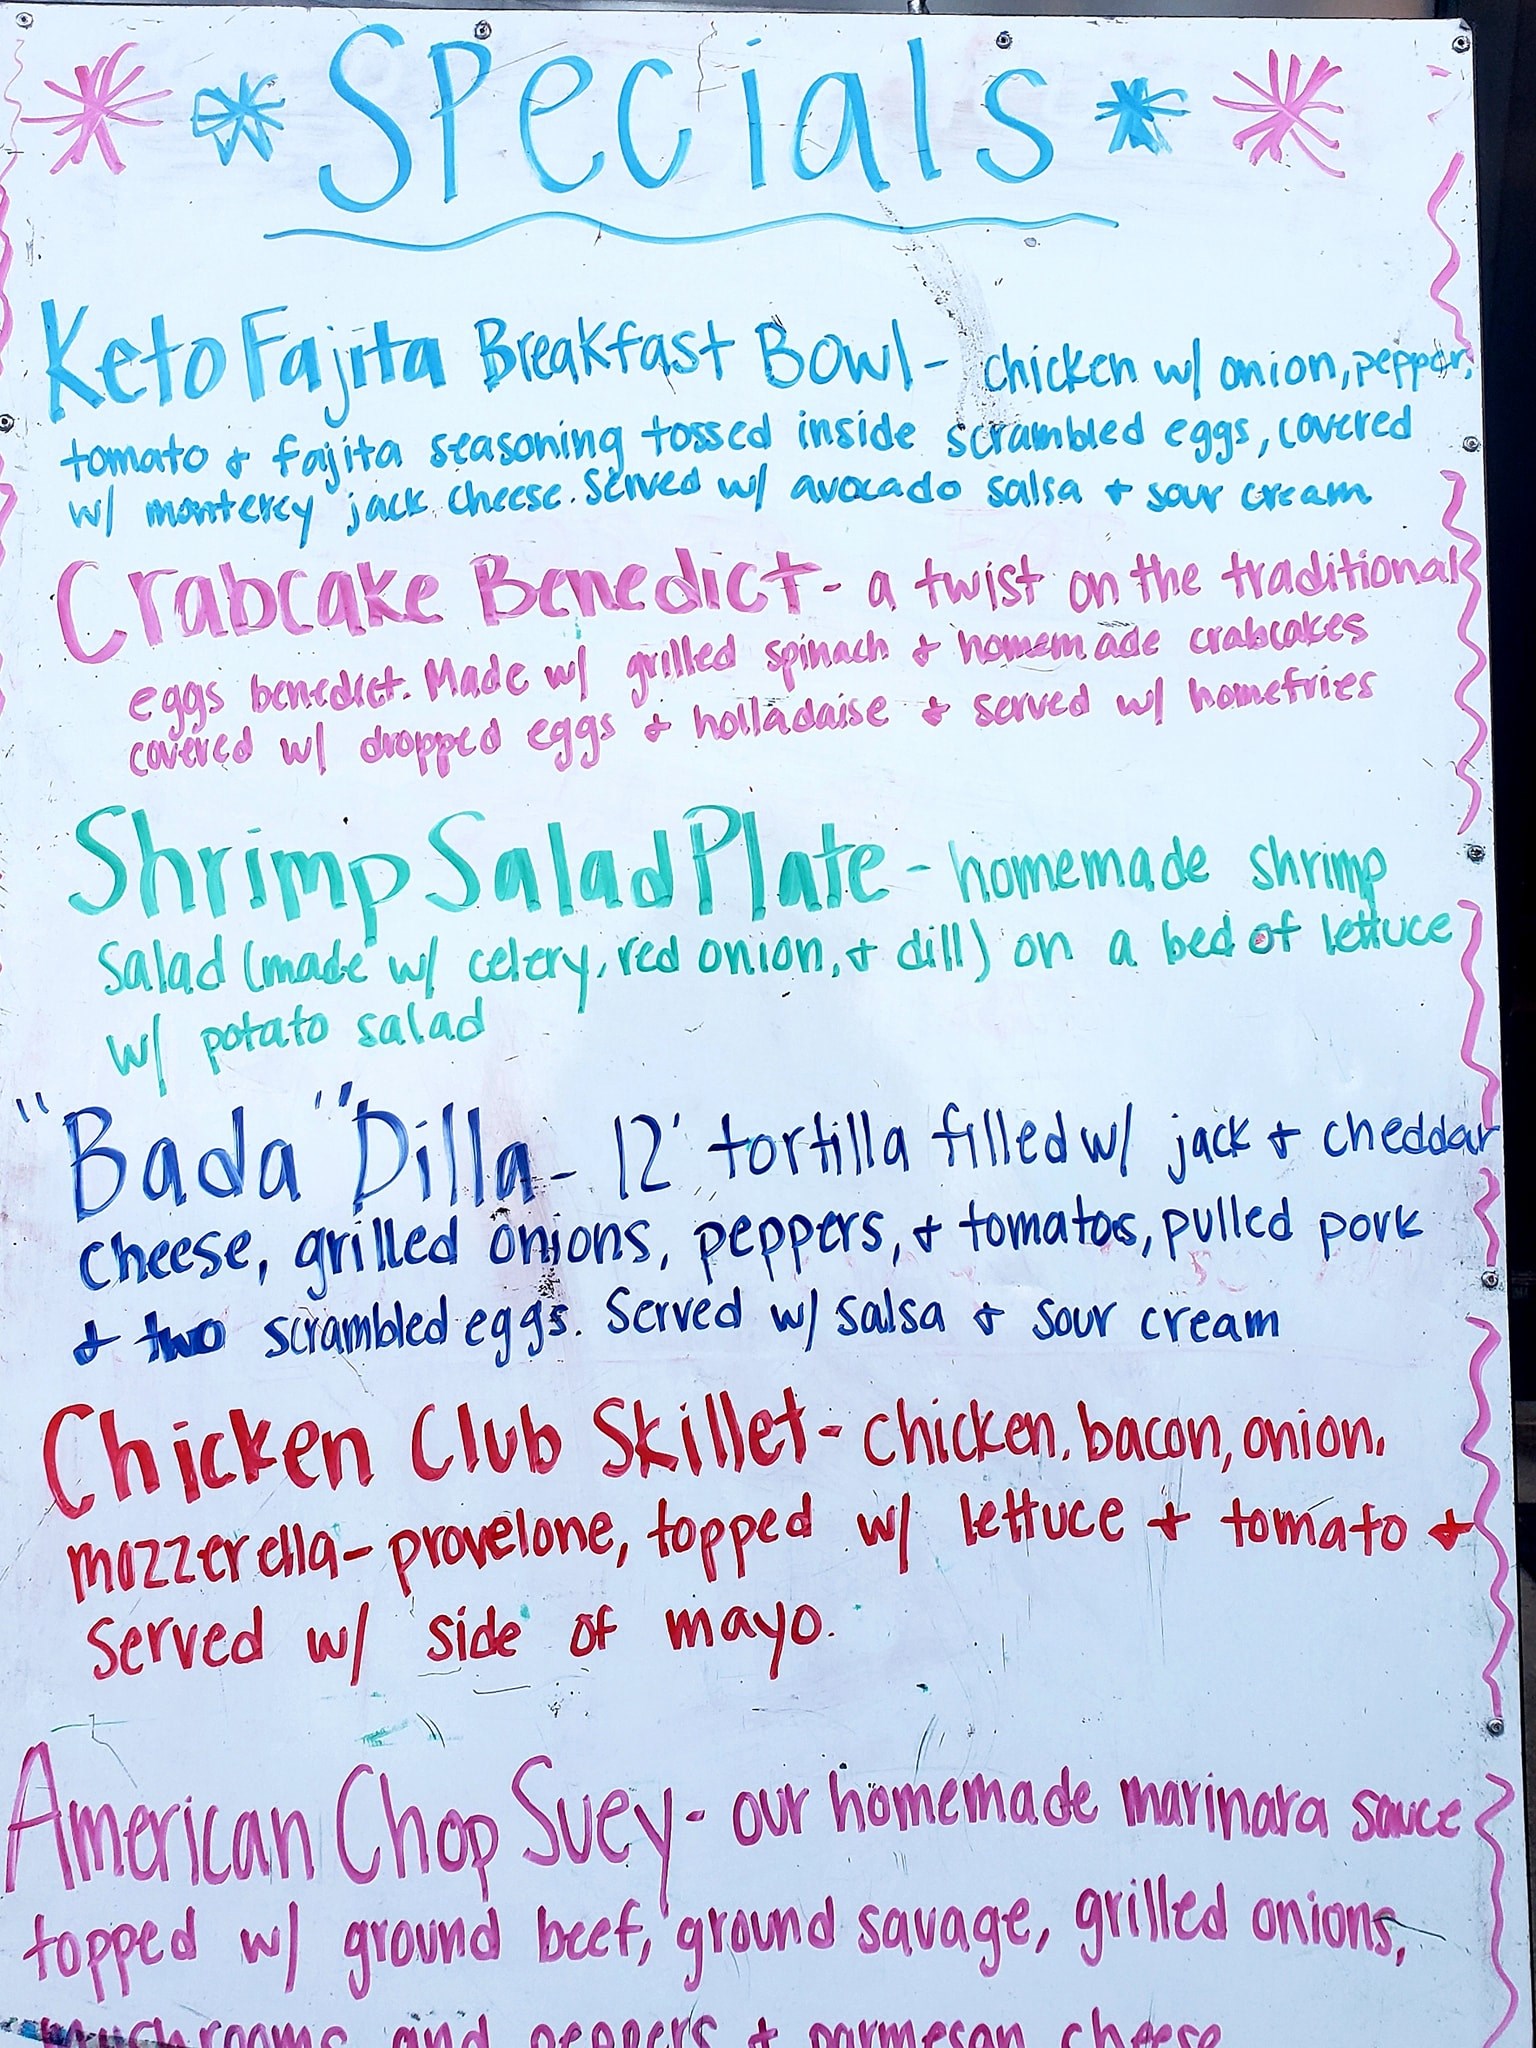 Specials
Keto Fajita Breakfast Bowl - chicken w/ onion, pepper,
tomato & fajita seasoning tossed inside scrambled eggs, covered
w/ monterey jack cheese. Served w/ avocado salsa & sour cream
Crabcake Benedict - a twist on the traditional
eggs benedict. Made w/ grilled spinach & homemade crabcakes
covered w/ dropped eggs & holladaise & served w/ homefries
Shrimp Salad Plate - homemade shrimp
Salad (made w/ celery, red onion, & dill) on a bed of lettuce
w/ potato salad
"Bada" Dilla - 12' tortilla filled w/ jack & cheddar
cheese, grilled onions, peppers, & tomatos, pulled pork
& two scrambled eggs. Served w/ salsa & sour cream
Chicken Club Skillet - chicken, bacon, onion,
mozzerella - provelone, topped w/ lettuce & tomato &
Served w/ side of mayo.
American Chop Suey - our homemade marinara sauce
topped w/ ground beef, ground savage, grilled onions,
mushrooms and peppers & parmesan cheese